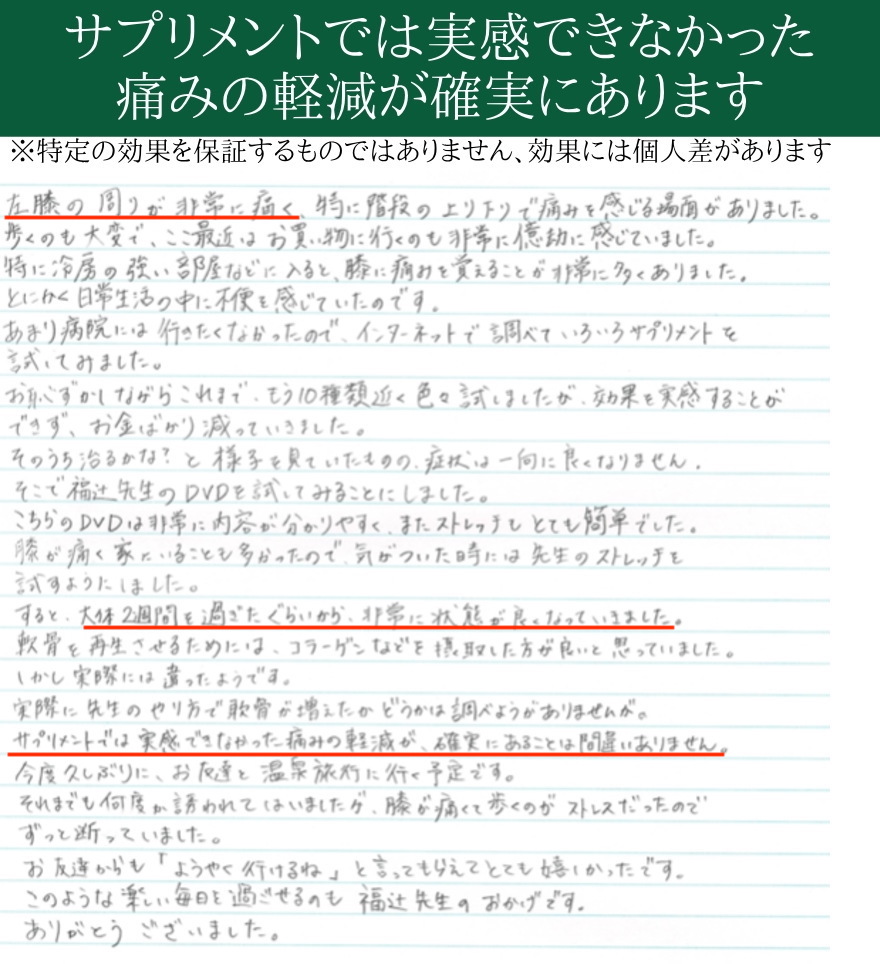 サプリメントでは実感できなかった
痛みの軽減が確実にあります
※特定の効果を保証するものではありません、効果には個人差があります
左膝の周りが非常に痛く、特に階段の上り下りで痛みを感じる場面がありました。
歩くのも大変で、ここ最近はお買い物に行くのも非常に億劫に感じていました。
特に冷房の強い部屋などに入ると、膝に痛みを覚えることが非常に多くありました。
とにかく日常生活の中に不便を感じていたのです。
あまり病院には行きたくなかったので、インターネットで調べていろいろサプリメントを
試してみました。
お恥ずかしながらこれまで、もう10種類近く色々試しましたが、効果を実感することが
できず、お金ばかり減っていきました。
そのうち治るかな?と様子を見ていたものの、症状は一向に良くなりません。
そこで福辻先生のDVDを試してみることにしました。
こちらのDVDは非常に内容が分かりやすく、またストレッチもとても簡単でした。
膝が痛く家にいることも多かったので、気がついた時には先生のストレッチを
試すようにしました。
すると、大体2週間を過ぎたぐらいから、非常に状態が良くなっていきました。
軟骨を再生させるためには、コラーゲンなどを摂取した方が良いと思っていました。
しかし実際には違ったようです。
実際に先生のやり方で軟骨が増えたかどうかは調べようがありませんが。
サプリメントでは実感できなかった痛みの軽減が、確実にあることは間違いありません。
今度久しぶりに、お友達と温泉旅行に行く予定です。
それまでも何度か誘われてはいましたが、膝が痛くて歩くのがストレスだったので
ずっと断っていました。
お友達からも「ようやく行けるね」と言ってもらえてとても嬉しかったです。
このような楽しい毎日を過ごせるのも福辻先生のおかげです。
ありがとうございました。